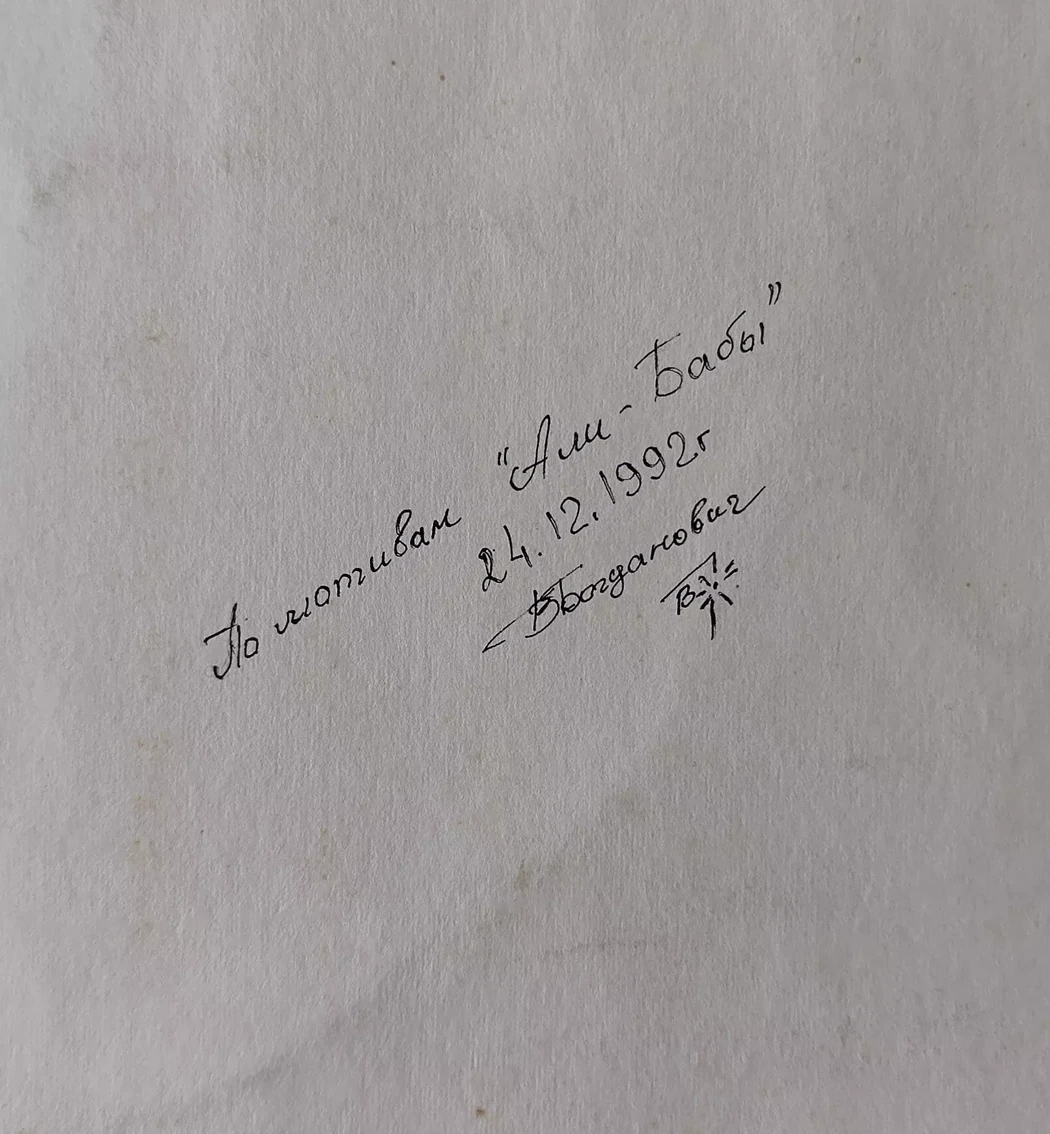 По мотивам "Али-Бабы"
24.12.1992г
ВБогданович